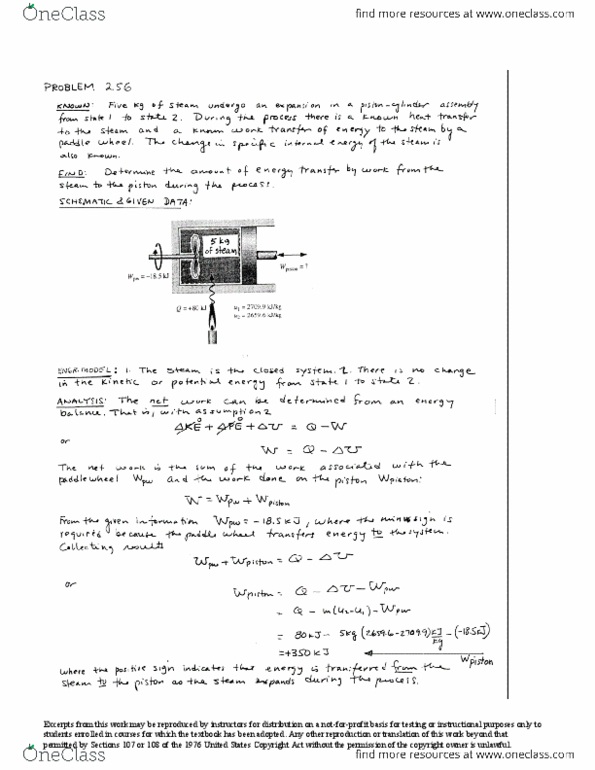 OneClass
find more resources at www.oneclass.com
PROBLEM 2.56
KNOWN: Five kg of steam undergo an expansion in a piston-cylinder assembly
from state 1 to state 2. During the process there is a known heat transfer
to the steam and a known work transfer of energy to the steam by a
paddle wheel. The change in specific internal energy of the steam is
also known.
FIND: Determine the amount of energy transfer by work from the
steam to the piston during the process.
SCHEMATIC & GIVEN DATA:
5 kg
of steam
Wpw = -18.5 kJ
Wpiston = ?
Q = +80 kJ
u1 = 2709.9 kJ/kg
u2 = 2659.6 kJ/kg
ENGR. MODEL: 1. The steam is the closed system. 2. There is no change
in the kinetic or potential energy from state 1 to state 2.
ANALYSIS: The net work can be determined from an energy
balance. That is, with assumption 2
ΔKE⁰ + ΔPE⁰ + ΔU = Q - W
or
W = Q - ΔU
The net work is the sum of the work associated with the
paddlewheel Wpw and the work done on the piston Wpiston:
W = Wpw + Wpiston
From the given information Wpw = -18.5 kJ, where the minus sign is
required because the paddle wheel transfers energy to the system.
Collecting results
Wpw + Wpiston = Q - ΔU
or
Wpiston = Q - ΔU - Wpw
= Q - m(u2-u1) - Wpw
= 80 kJ - 5kg (2659.6-2709.9) kJ/kg - (-18.5kJ)
= +350 kJ
Wpiston
where the positive sign indicates that energy is transferred from the
steam to the piston as the steam expands during the process.
Excerpts from this work may be reproduced by instructors for distribution on a not-for-profit basis for testing or instructional purposes only to
students enrolled in courses for which the textbook has been adopted. Any other reproduction or translation of this work beyond that
permitted by Sections 107 or 108 of the 1976 United States Copyright Act without the permission of the copyright owner is unlawful.
OneClass
find more resources at www.oneclass.com